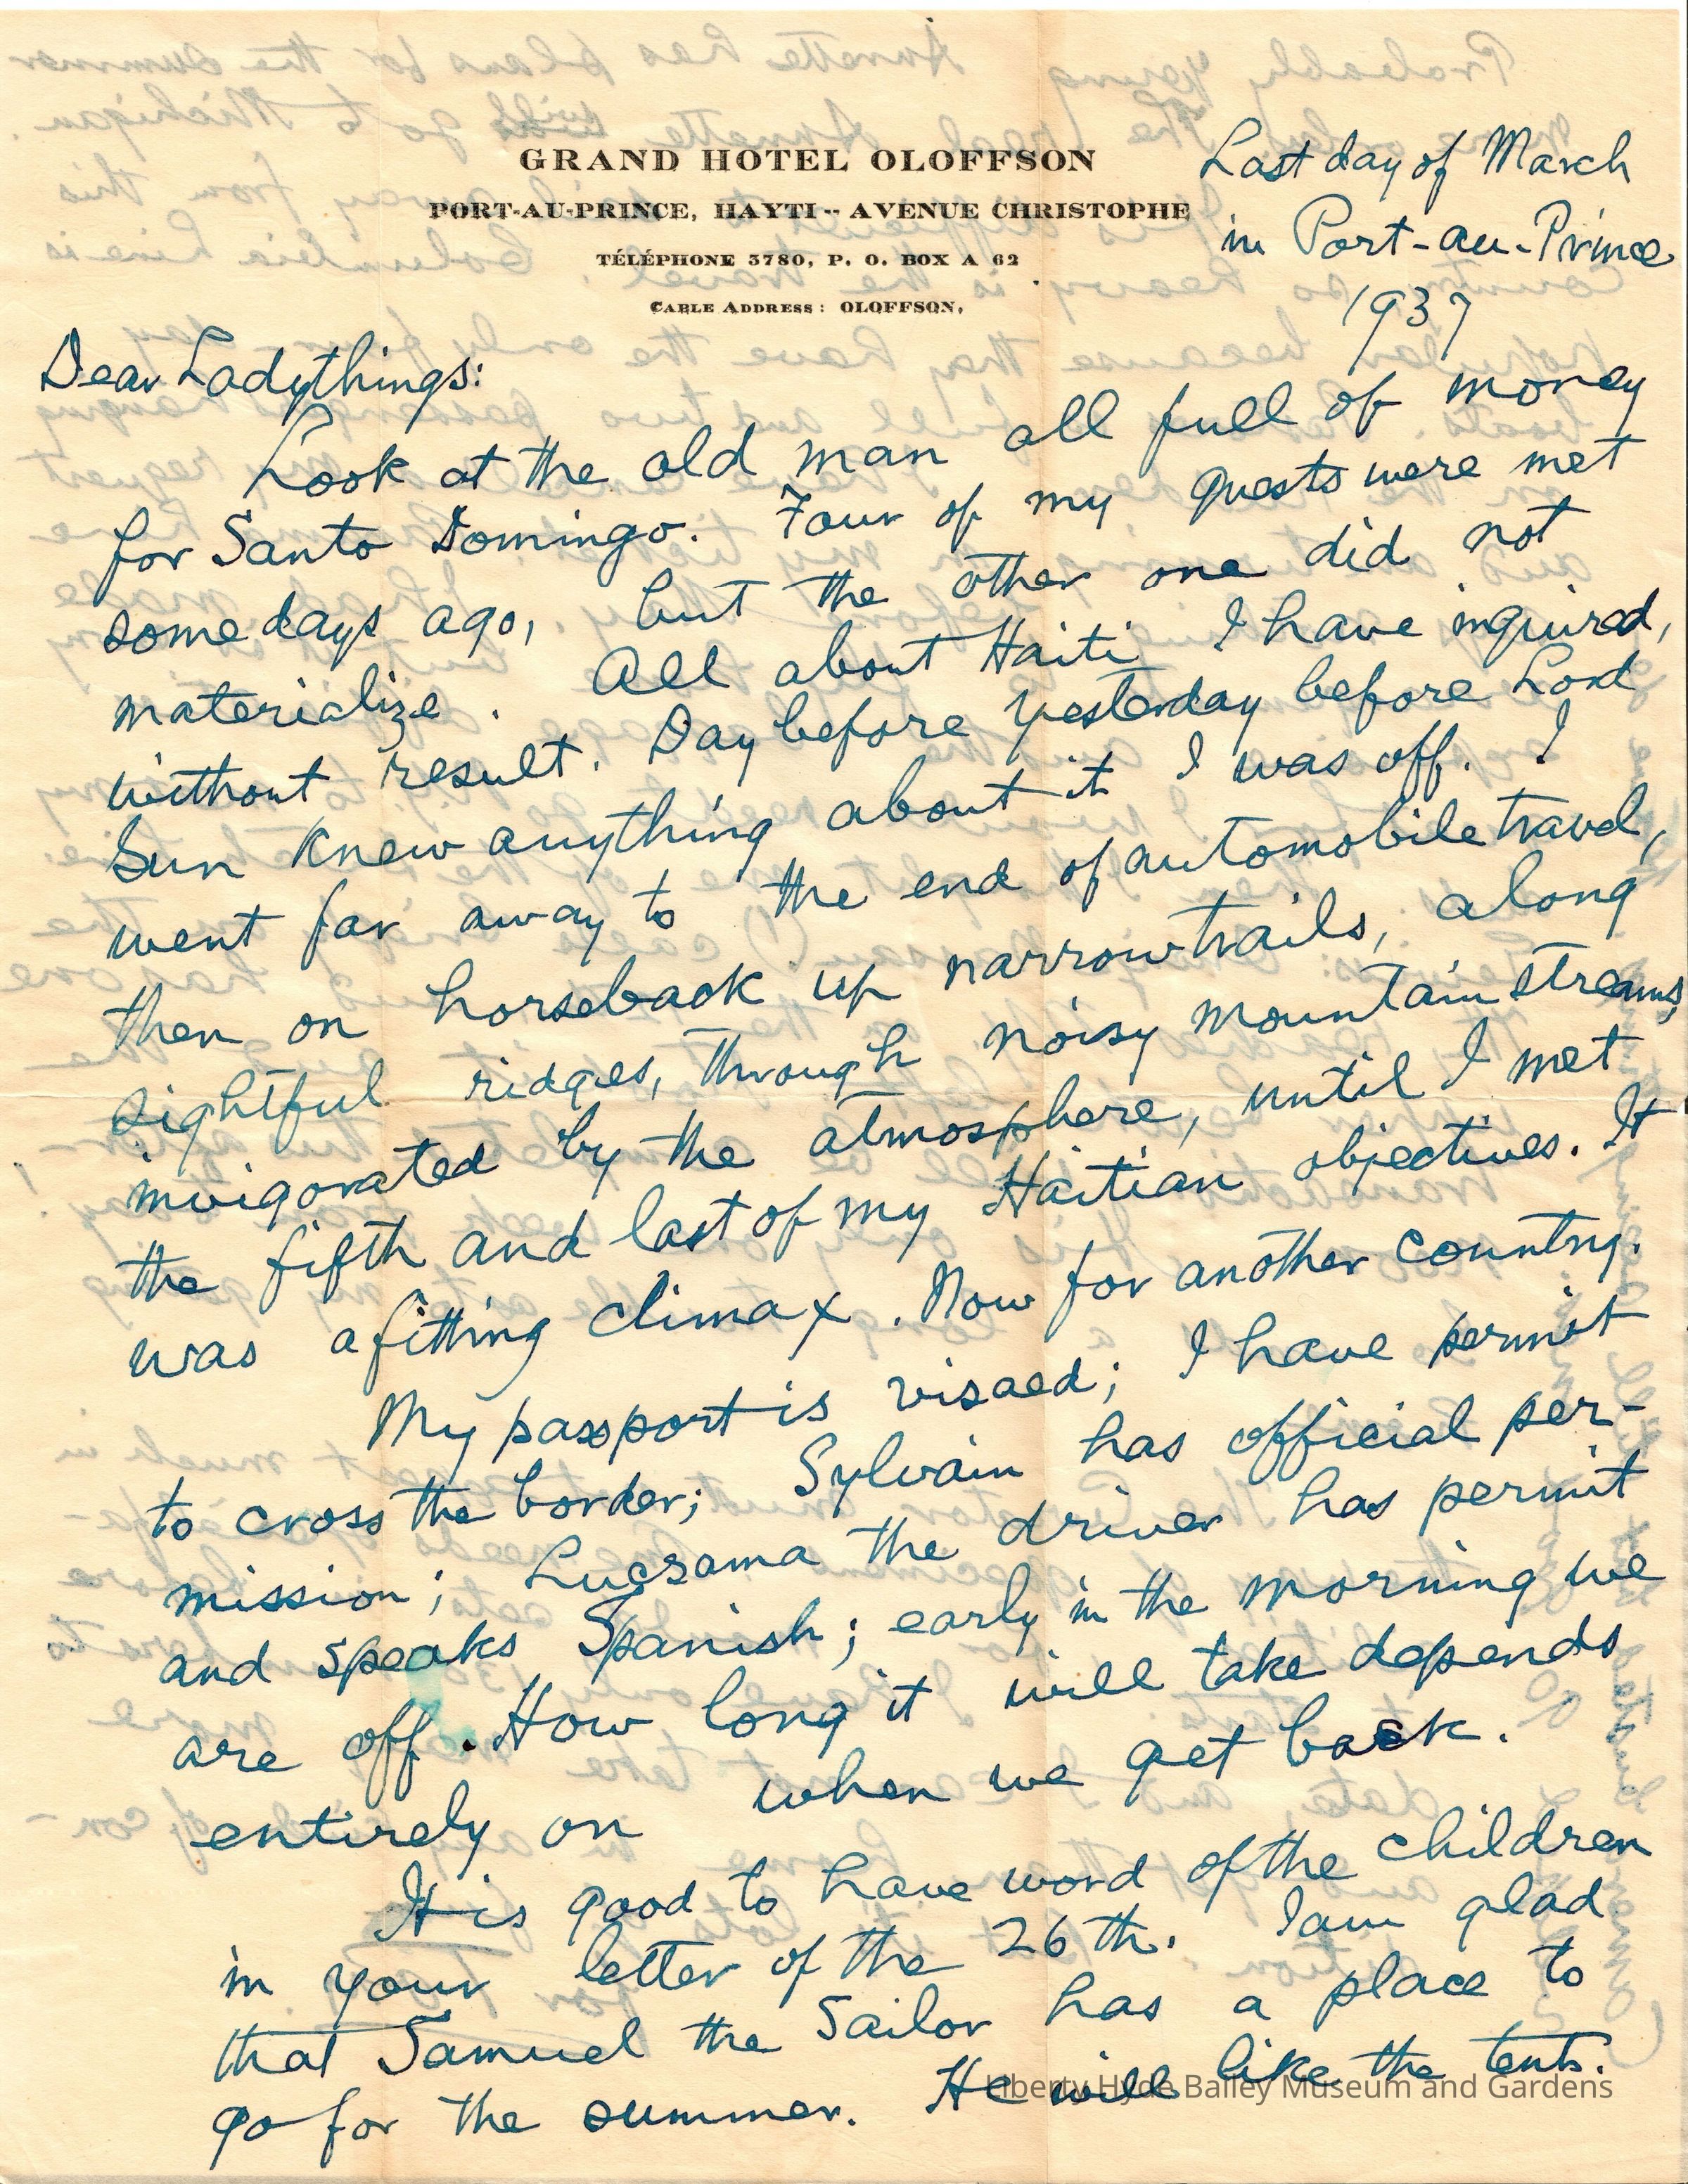 GRAND HOTEL OLOFFSON
PORT-AU-PRINCE, HAYTI -- AVENUE CHRISTOPHE
TÉLÉPHONE 3780, P. O. BOX A 62
CABLE ADDRESS: OLOFFSON.
Last day of March
in Port-au-Prince
1937
Dear Ladythings:
Look at the old man all full of money
for Santo Domingo. Four of my guests were met
some days ago, but the other one did not
materialize. All about Haiti I have inquired,
without result. Day before yesterday before Lord
Sun knew anything about it I was off. I
went far away to the end of automobile travel,
then on horseback up narrow trails, along
sightful ridges, through noisy mountain streams,
invigorated by the atmosphere, until I met
the fifth and last of my Haitian objectives. It
was a fitting climax. Now for another country.
My passport is visaed; I have permit
to cross the border; Sylvain has official per-
mission; the driver has permit
and speaks Spanish; early in the morning we
are off. How long it will take depends
entirely on when we get back.
It is good to have word of the children
in your letter of the 26th. I am glad
that Samuel the Sailor has a place to
go for the summer. He will like the tents.
Liberty Hyde Bailey Museum and Gardens